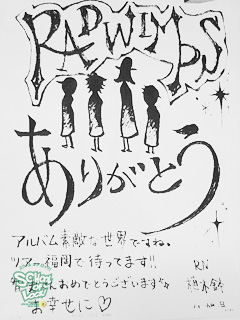 RADWIMPS
ありがとう
アルバム素敵な世界ですね。
ツアー福岡で待ってます!!
おめでとうございます
お幸せに♡
RN